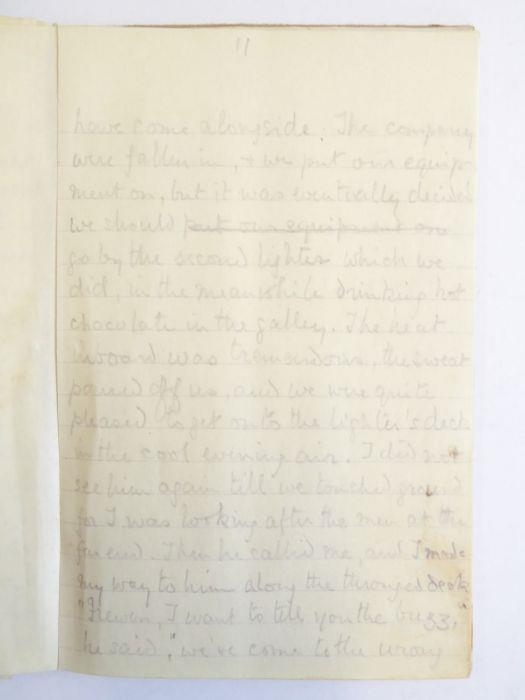 11
have come alongside. The company
were fallen in, & we put our equip
ment on, but it was eventually decided
we should put our equipment on
go by the second lighter which we
did, in the meanwhile drinking hot
chocolate in the galley. The heat
inboard was tremendous, the sweat
poured off us, and we were quite
pleased to get onto the lighter's deck
in the cool evening air. I did not
see him again till we touched ground
for I was looking after the men at the
far end. Then he called me, and I made
my way to him along the thronged deck
I want to tell you the buzz,"
he said, "we've come to the wrong